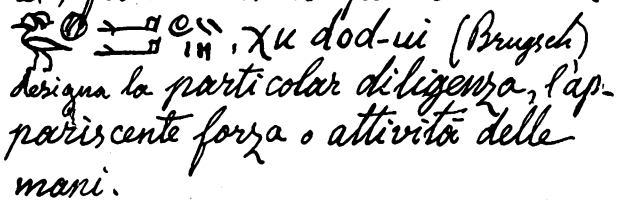 , χu dod-ui (Brugsch)
designa la particolar diligenza, l'ap-
pariscente forza o attività delle
mani.